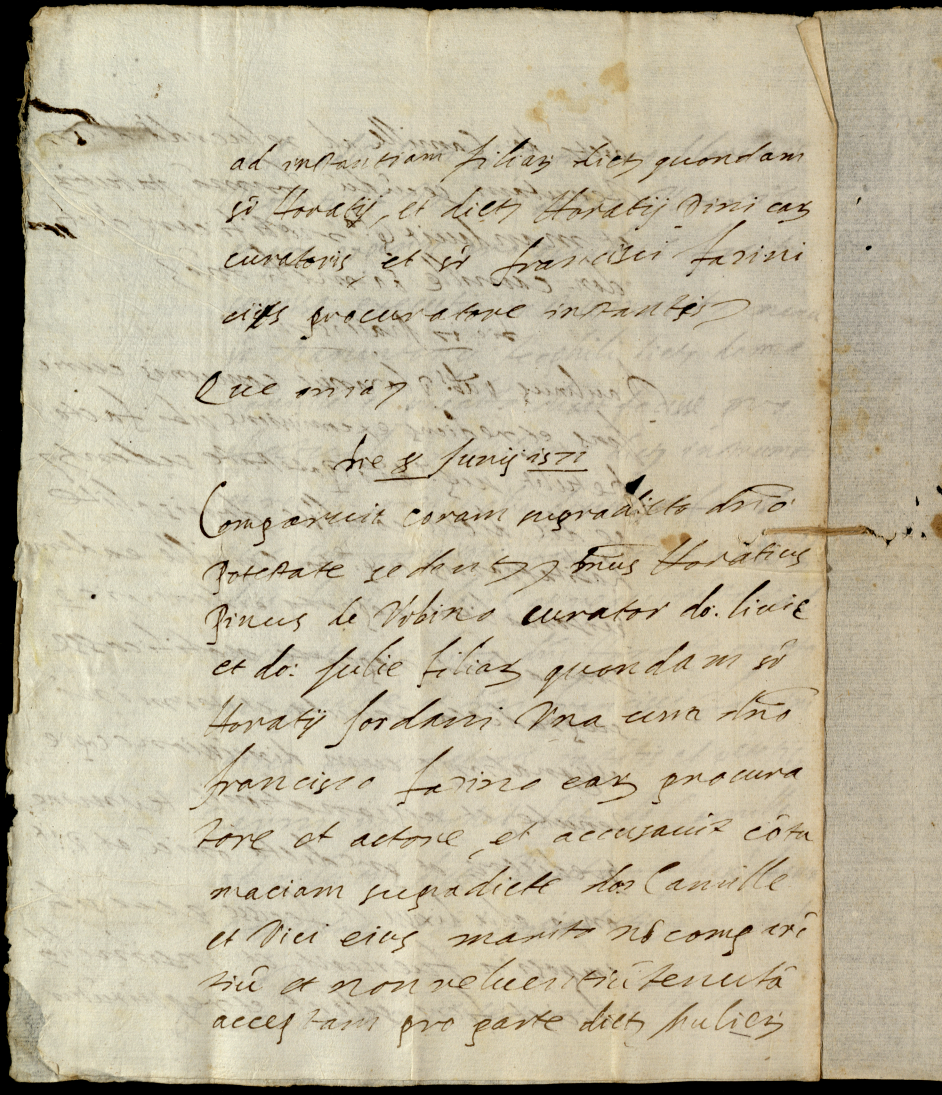 ad instantiam filiaꝝ dictꝫ quondam
sʳ Horatij, et dictꝫ Horatij Pini eaꝝ
curatoris et sʳ francisci farini
eiꝰ procuratore instantꝭ
Que
Die 8 Junij 1571
Comparuit coram supradicto dn̄o
potestate sedentꝫ Horatius
Pinus de Vrbino curator do: liuie
et do: Julie filiaꝝ quondam sʳ
Horatij Jordani Vna cum dn̄o
francisco farino eaꝝ procura
tore et actore, et accusauit cōtu
maciam supradicte do: Camille
et Vici eius mariti nō compare
tiū et non reluentiū tenutā
acceptam pro parte dictꝫ pupillaꝝ